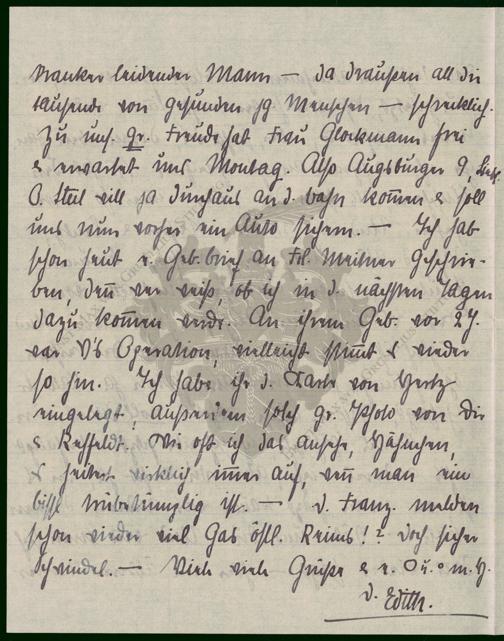 kranker leidender Mann — da draußen all die
tausende von gesunden jg. Menschen — schrecklich.
Zu uns. gr. Freude hat Frau Glockmann frei
& erwartet uns Montag. Also Augsburger 9,
O. will ja durchaus an d. Bahn kommen & soll
uns nun vorher ein Auto sichern. — Ich hab
schon heut e. Geb. brief an Frl. Meitner geschrie-
ben, denn wer weiß, ob ich in d. nächsten Tagen
dazu kommen werde. An ihrem Geb. vor 2 J.
war V's Operation, vielleicht stimmt es wieder
so hin. Ich habe ihr d. Karte von Hertz
eingelegt, außerdem solch gr. Photo von Dir
& Rehfeldt. Wie oft ich das ansehe, Hähnchen,
es heitert wirklich immer auf, wenn man ein
bissl trübetümplig ist. — D. Franz. melden
schon wieder viel Gas östl. Reims!? Doch sicher
Schwindel. — Viele viele Grüße & e.
D. Edith.